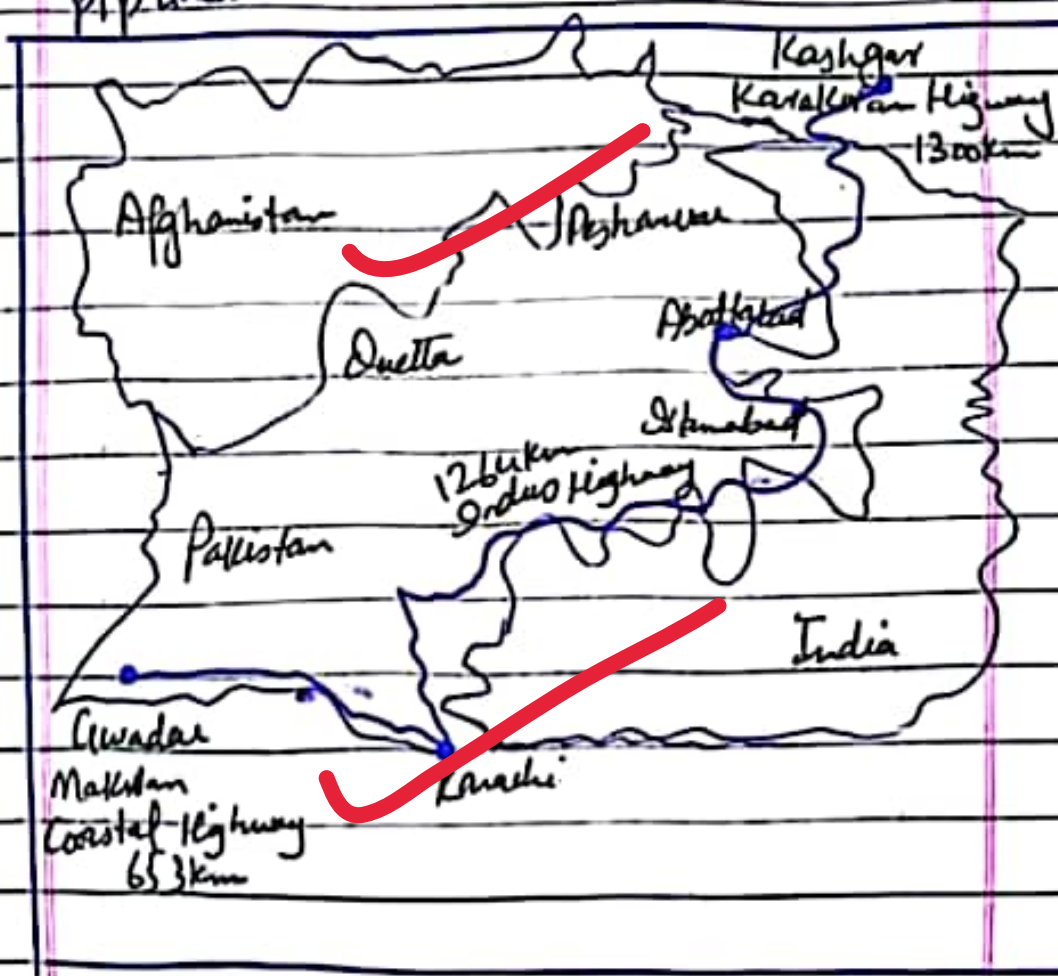 Kashgar
Karakoram Higway
1300km
Afghanistan
Peshawar
Abottabad
Quetta
Islamabad
1264km
Indus Highway
Pakistan
India
Gwadar
Karachi
Makran
Coastal Highway
653km